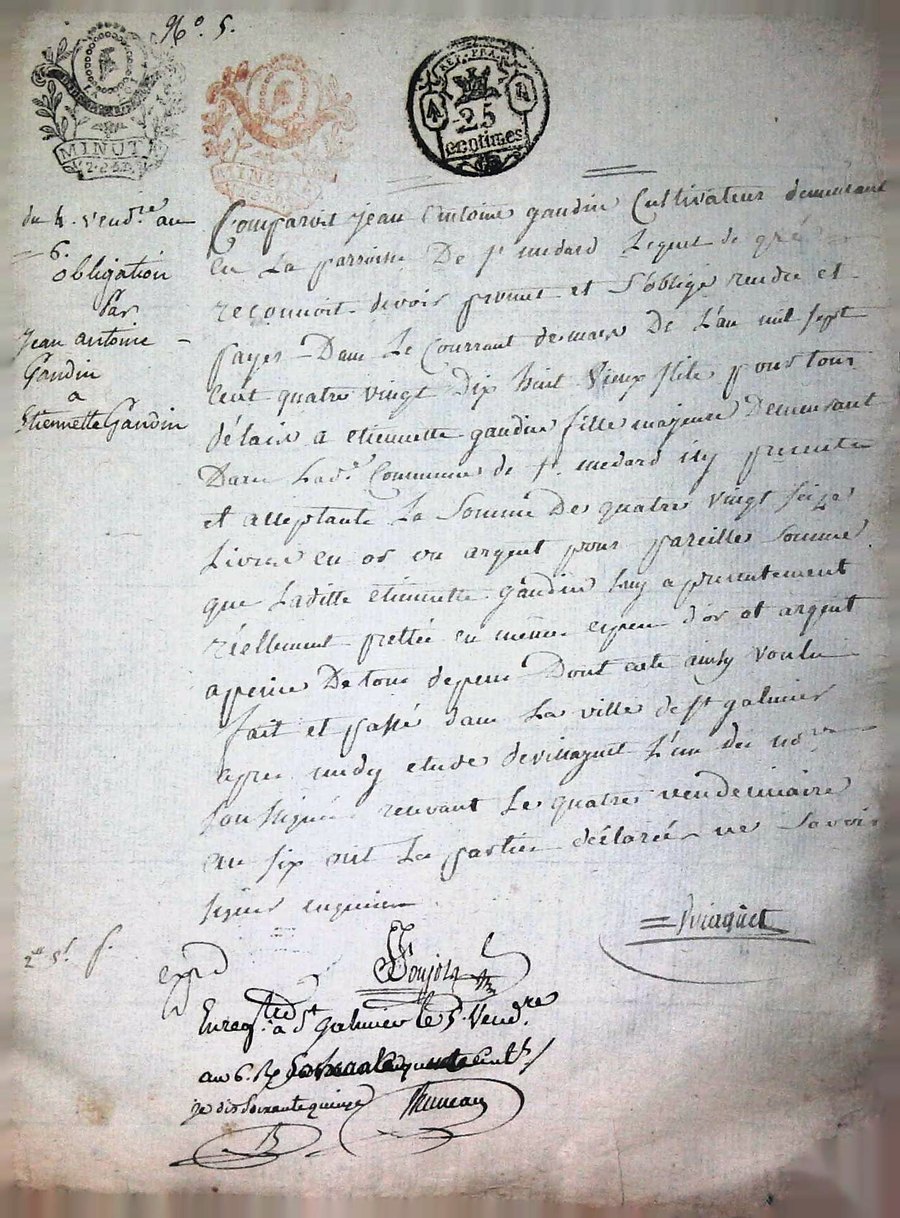 N.° 5.
MINUTE
MINUTE
REP. FRA.
25
centimes
du 4. vend.re an
6.
obligation
Par
Jean antoine
Gandin
a
Etiennette Gandin
Comparoit jean Antoine gandin Cultivateur demeurant
en La parroisse De st medard Lequel de gré
reconnoit devoir promet et S'oblige rendre et
payer Dans Le Courrant de mars De L'an mil sept
Cent quatre vingt Dix huit Vieux stile pour tous
délais a etiennette gandin fille majeure Demeurant
Dans Lad.e Commune de st medard icy presente
et acceptante La Somme De quatre vingt seize
Livres en or ou argent pour pareille somme
que Laditte etiennette gandin luy a presentement
réellement prettée en mêmes especes d'or et argent
a peine De tous depens Dont acte ainsy voulu
fait et passé dans La ville de st galmier
apres midy etude de viraguet L'un des no.res
soussignés recevant Le quatre vendemiaire
an six ont Les parties déclarées ne savoir
signer enquises
Viraguet
2.e st f.
exp.d
Enreg.tré à St galmier le 5. Vend.re
an 6. R
je dis Soixante quinze